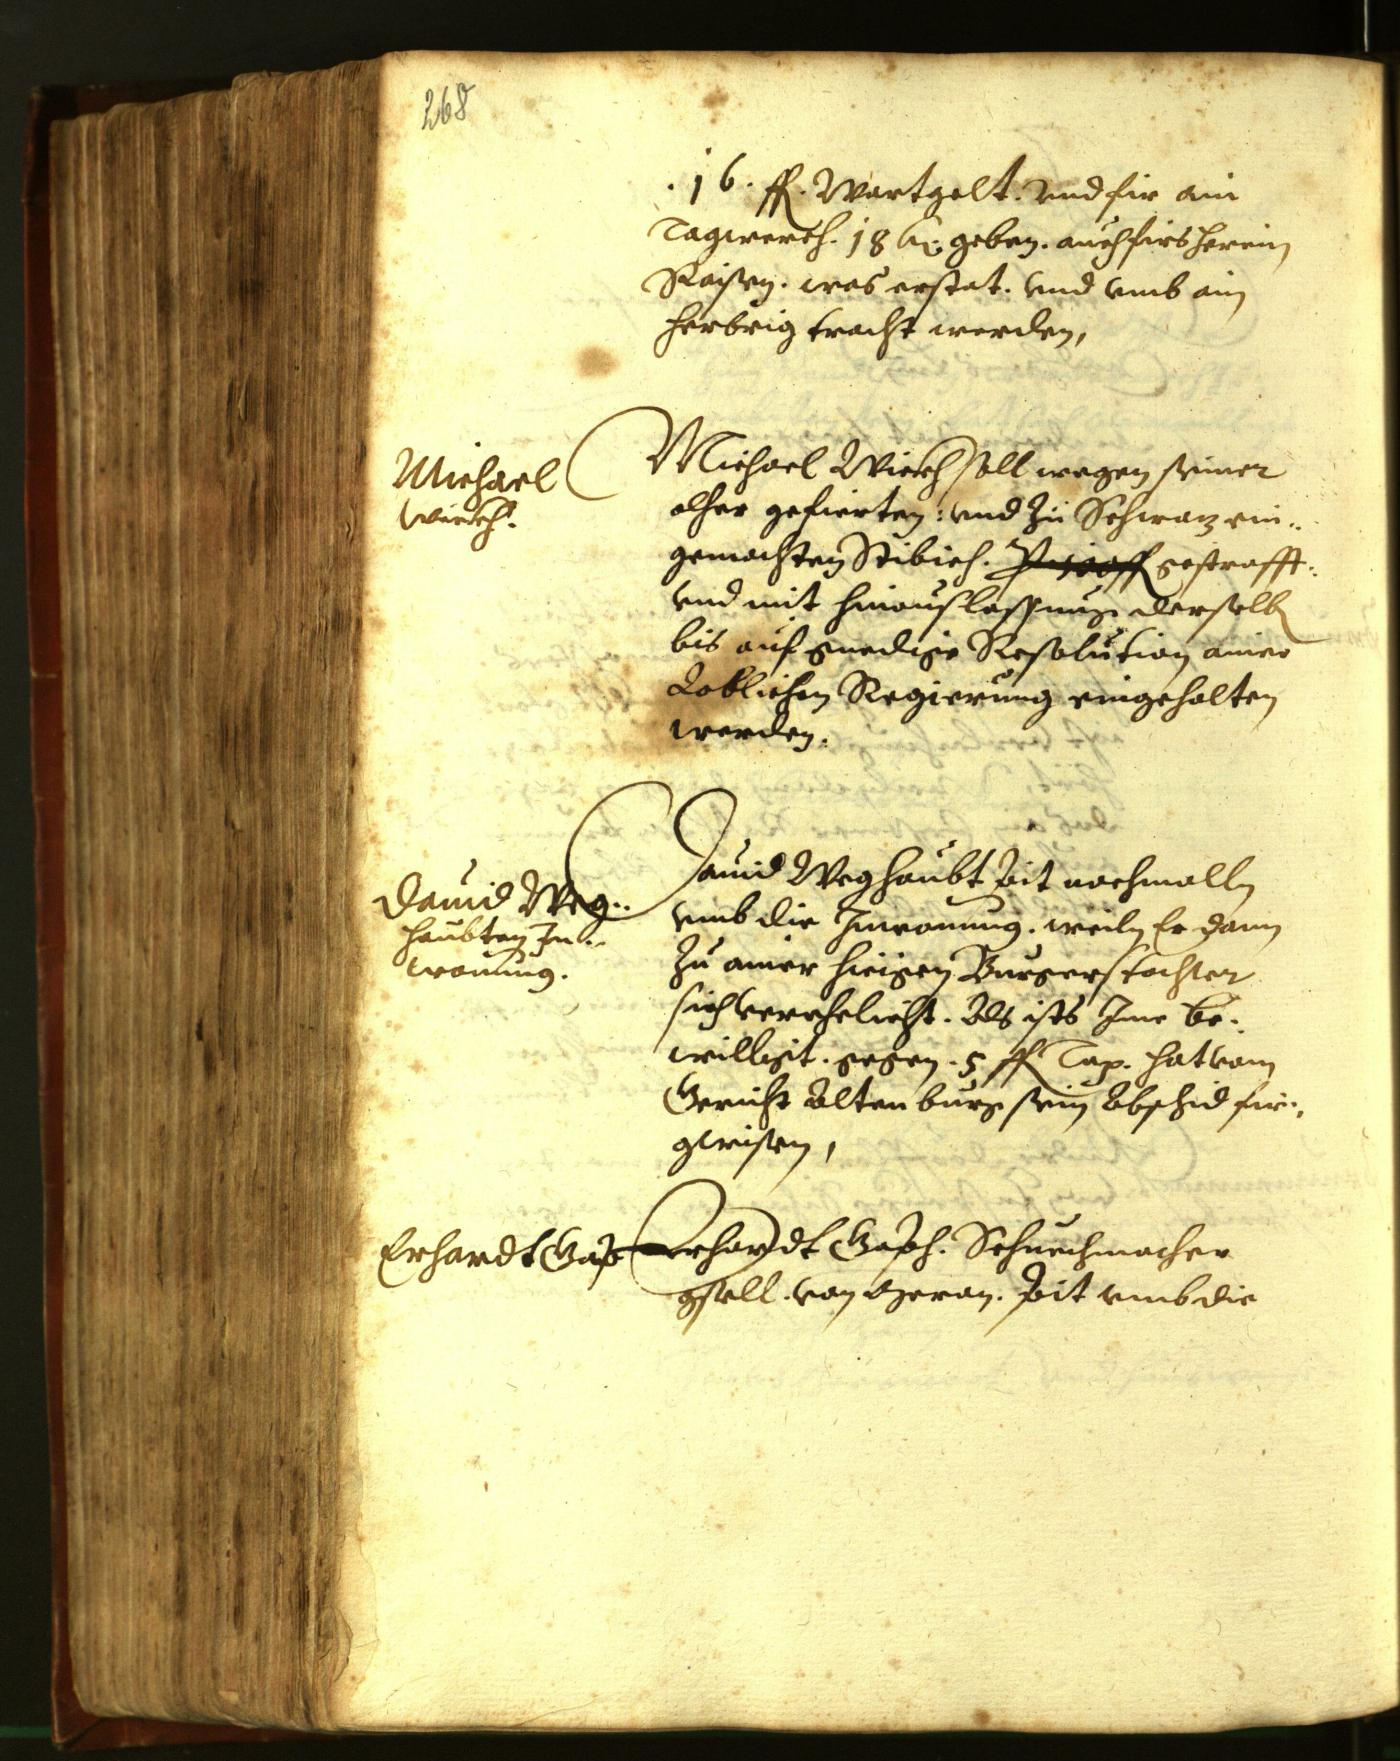 268
.16. fl. Wartgelt. vnd fir ain
Tagwerch. 18 kr. geben. auch firs herein
Raisen. was erstat. vnd vmb ain
herbrig tracht werden,
Michael
Wierth.
Michael Wierth soll wegen seiner
alher gefierten: vnd zu Schwaz ein..
gemachten Stibich. gestrafft.
vnd mit hinauslassung derselb
bis auf gnedige Resolution ainer
Loblichen Regierung eingehalten
werden.
Dauid Weg..
haubten In..
wonung.
Dauid Weghaubt bit nochmalln
vmb die Inwonung. weiln Er dann
zu ainer hieigen Burgerstochter
sich verehelicht. Als ists Ime be..
willigt. gegen. 5 fl Tax. hat vom
Gericht Altenburg sein Abschid fir..
gwisen,
Erhardt Gasß
Erhardt Gasß. Schuechmacher
gsell. von Meran. bit vmb die